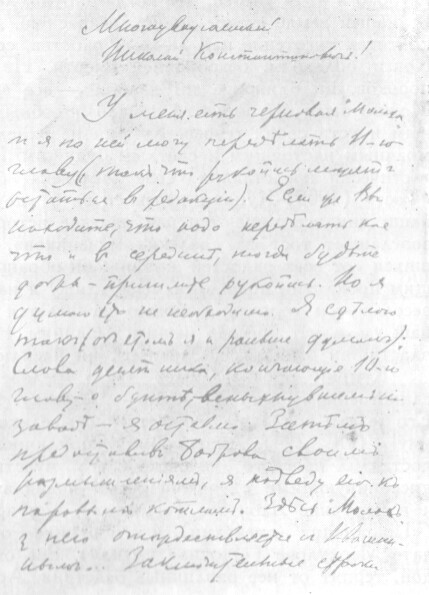 Многоуважаемый
Николай Константиновичъ!
У меня есть черновая "Молоха"
и я по ней могу передѣлать 11-ю
главу (такъ что рукопись можетъ
остаться в редакціи). Если же Вы
находите, что надо передѣлать кое
что и в серединѣ, тогда будьте
добры – пришлите рукопись. Но я
думаю это не необходимо. Я сдѣлаю
такъ (объ этомъ я и раньше думалъ):
Слова десятника, кончающіе 10-ю
главу – о бунтѣ, вспыхнувшемъ на
заводѣ – я оставлю. Затѣмъ
предоставивъ Боброва своимъ
размышленіямъ, я подведу его къ
паровымъ котламъ. Здѣсь Молохъ
у него отождествляется и Квашни-
нымъ. Заключительные строки